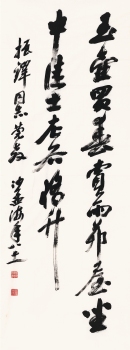 玉壺買春賞雨茆屋坐
中佳士左右脩竹
同志
沙孟海年八十